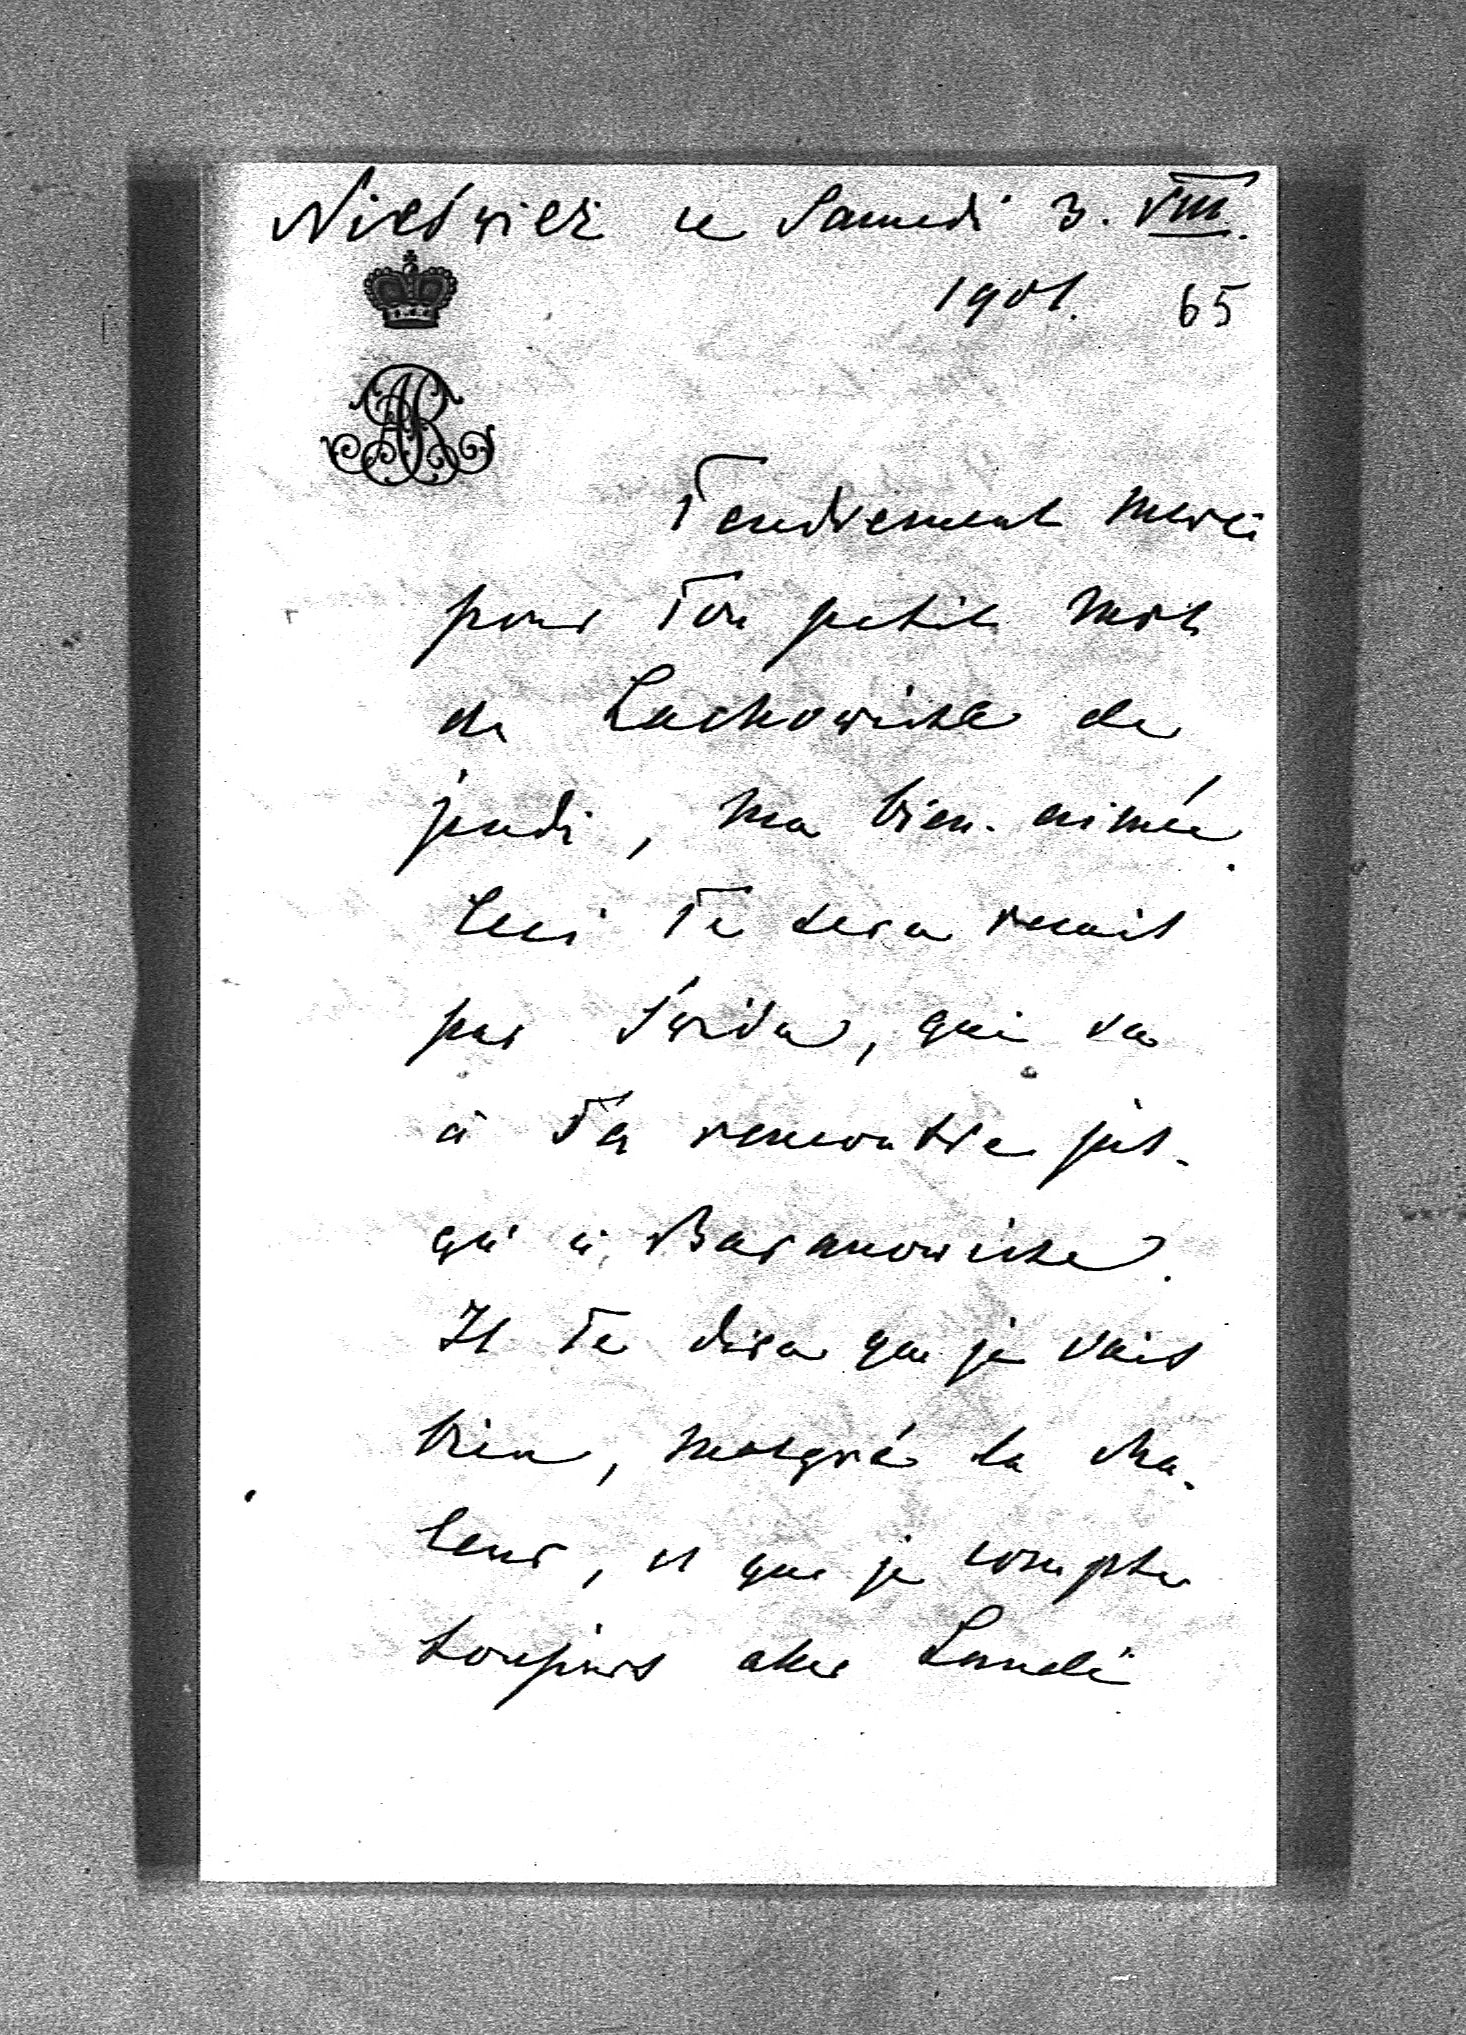 Nieśwież ce Samedi 3. VIII.
1901. 65
AR
Tendrement merci
pour Ton petit mot
de Lachowicze de
jeudi, ma bien-aimée.
Ceci Te sera remis
par Świda, qui va
à Ta rencontre jus-
qu'à Baranowicze.
Il Te dira que je vais
bien, malgré la cha-
leur, et que je compte
toujours aller Lundi